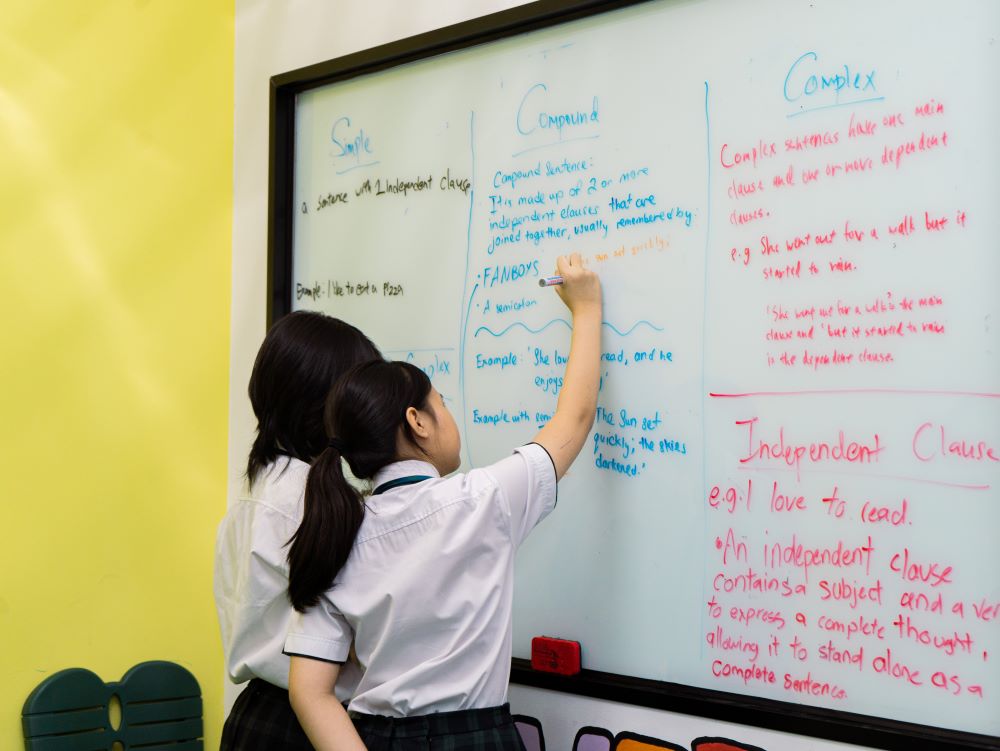 Simple
a sentence with 1 Independent clause
Example: I like to eat a Pizza
Compound
Compound Sentence:
It is made up of 2 or more
independent clauses that are
joined together, usually remembered by:
• FANBOYS
sun set quickly;
• A semicolon
Example: "She read, and he
enjoys
Example with "The Sun set
quickly; the skies
darkened."
Complex
Complex sentences have one main
clause and one or more dependent
clauses.
e.g She went out for a walk but it
started to rain.
'She went out for a walk' is the main
clause and 'but it started to rain
is the dependent clause.
Independent Clause
e.g. I love to read.
• An independent clause
contains a subject and a ver
to express a complete thought,
allowing it to stand alone as a
complete sentence.